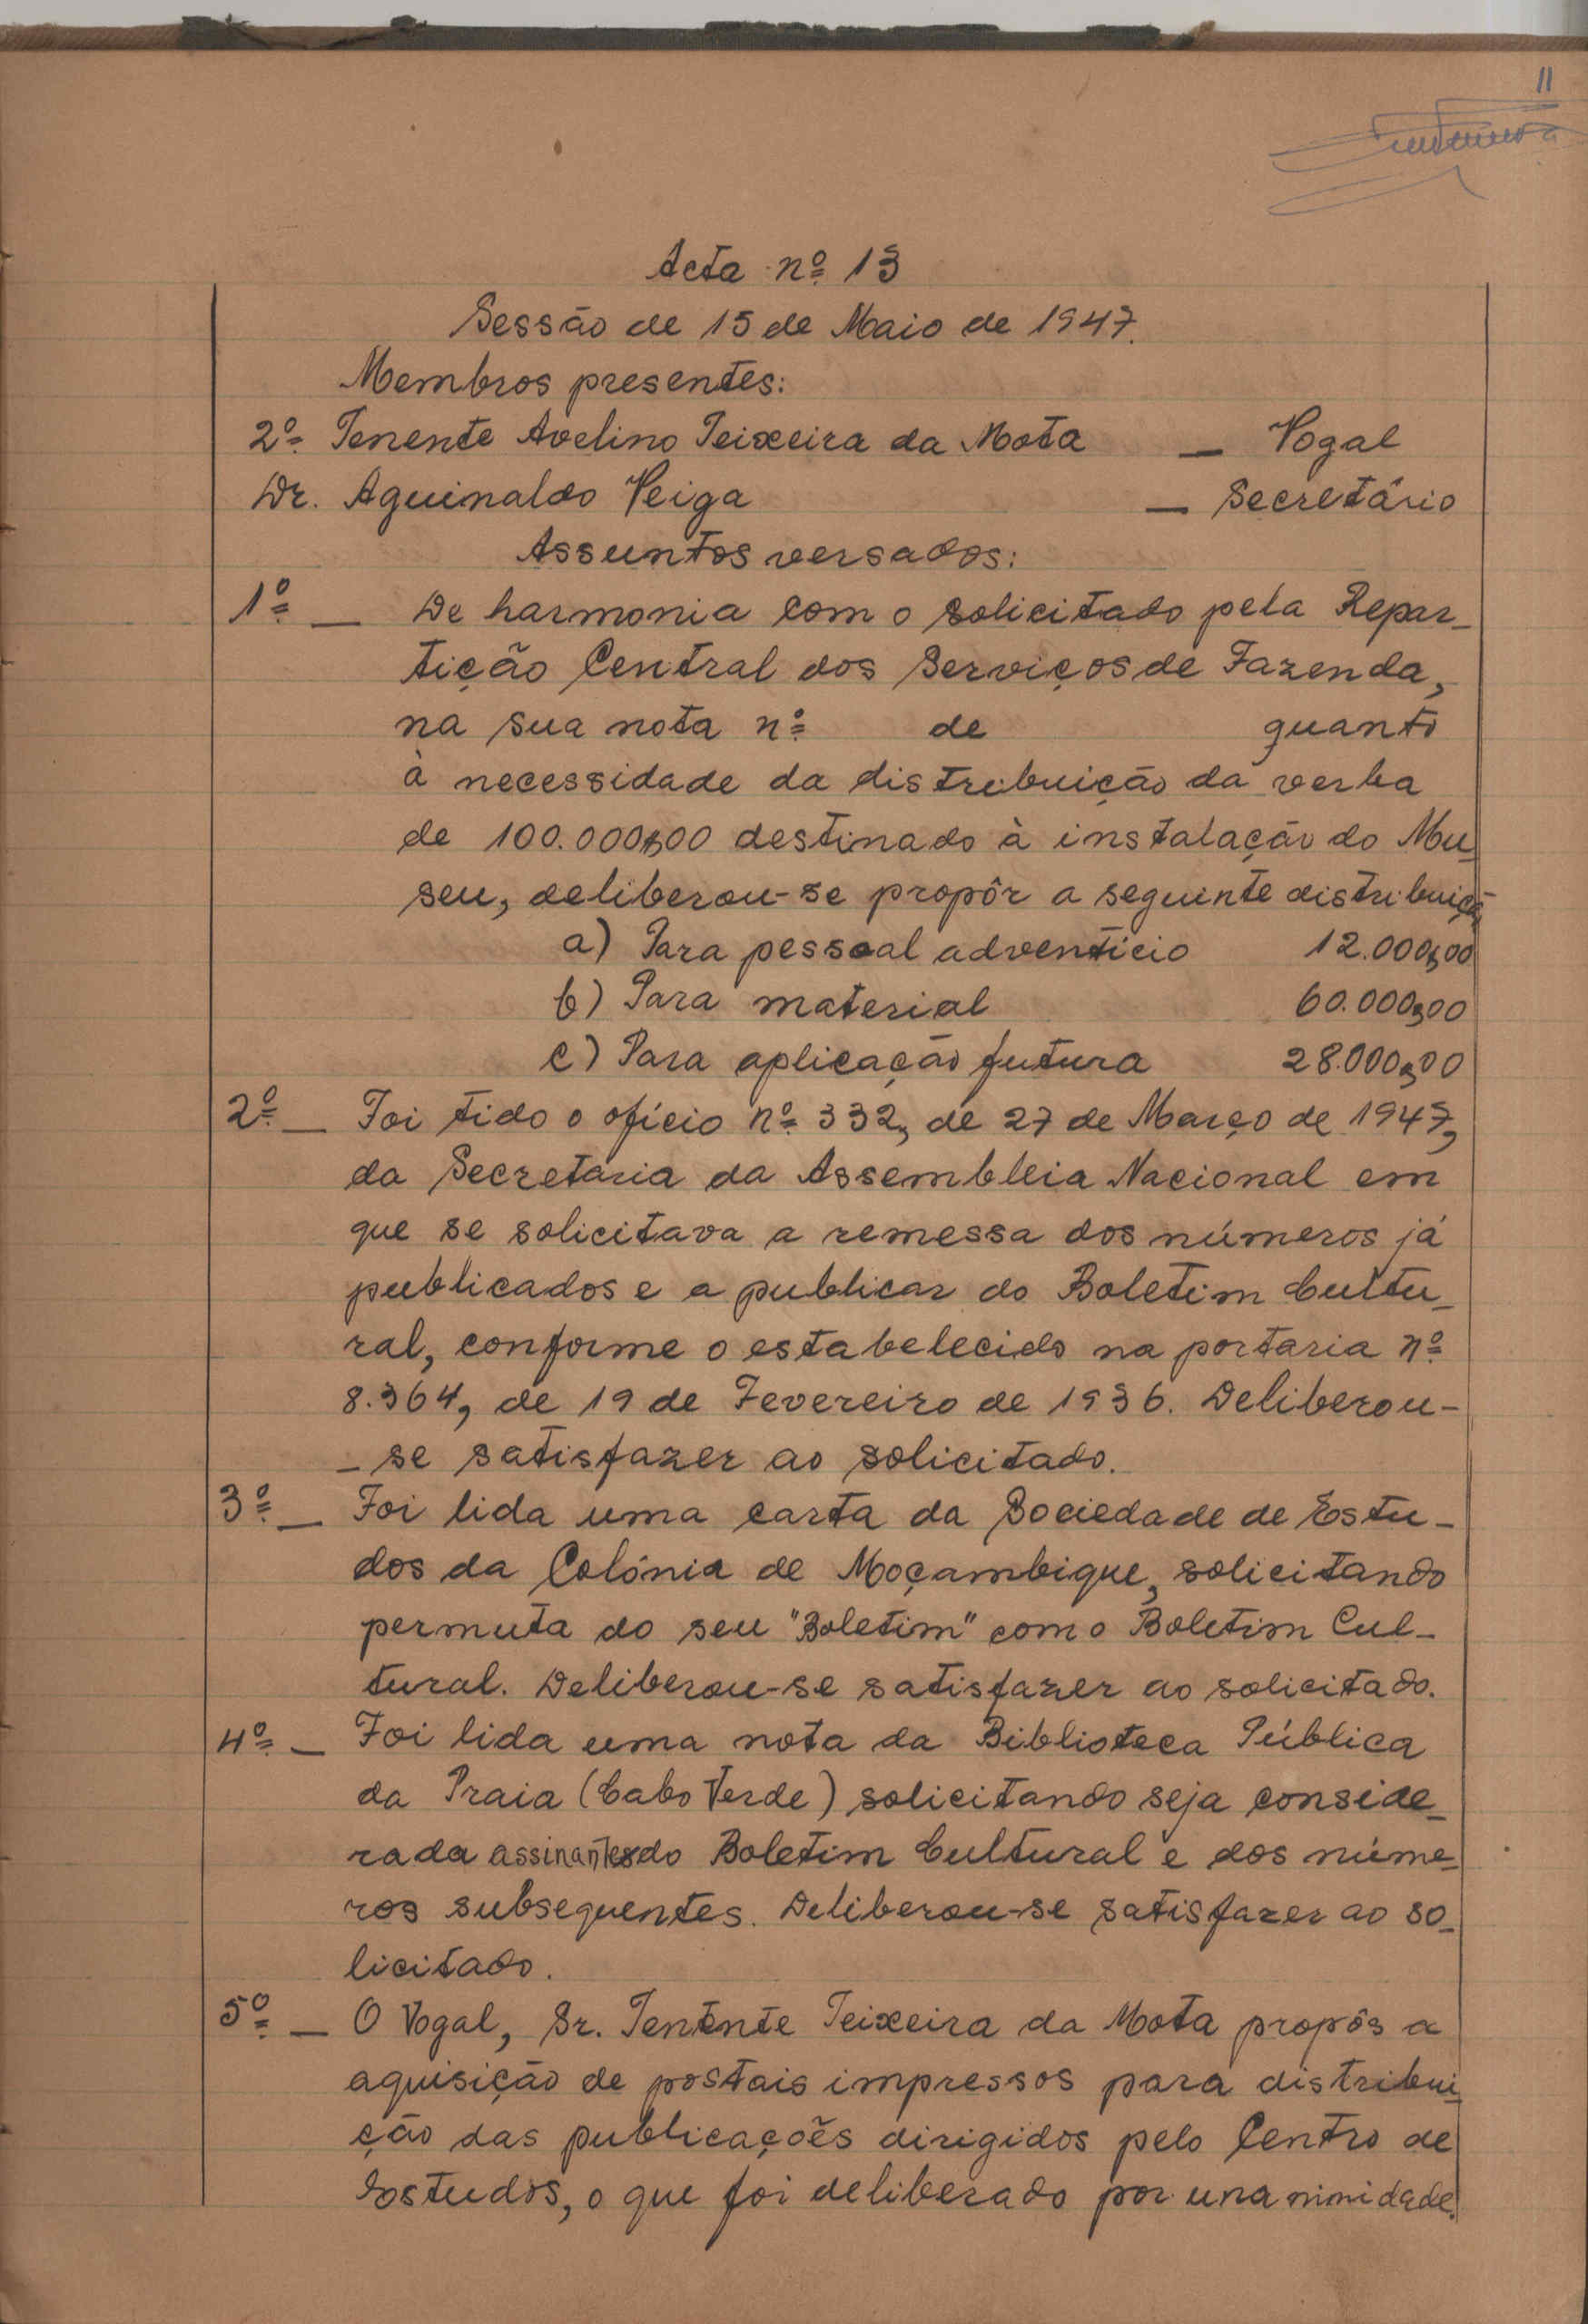 11
Acta nº 13
Sessão de 15 de Maio de 1947.
Membros presentes:
2º Tenente Avelino Teixeira da Mota — Vogal
Dr. Aguinaldo Veiga — Secretário
Assuntos versados:
1º — De harmonia com o solicitado pela Repar-
tição Central dos Serviços de Fazenda,
na sua nota nº de quanto
à necessidade da distribuição da verba
de 100.000$00 destinado à instalação do Mu-
seu, deliberou-se propôr a seguinte distribuiçã
a) Para pessoal adventício 12.000$00
b) Para material 60.000$00
c) Para aplicação futura 28.000$00
2º — Foi tido o ofício nº 332, de 27 de Março de 1947,
da Secretaria da Assembleia Nacional em
que se solicitava a remessa dos números já
publicados e a publicar do Boletim Cultu-
ral, conforme o estabelecido na portaria nº
8.364, de 19 de Fevereiro de 1936. Deliberou-
-se satisfazer ao solicitado.
3º — Foi lida uma carta da Sociedade de Estu-
dos da Colónia de Moçambique, solicitando
permuta do seu "Boletim" com o Boletim Cul-
tural. Deliberou-se satisfazer ao solicitado.
4º — Foi lida uma nota da Biblioteca Pública
da Praia (Cabo Verde) solicitando seja conside-
rada assinantes do Boletim Cultural e dos núme-
ros subsequentes. Deliberou-se satisfazer ao so-
licitado.
5º — O Vogal, Sr. Tenente Teixeira da Mota propôs a
aquisição de postais impressos para distribui-
ção das publicações dirigidos pelo Centro de
Estudos, o que foi deliberado por unanimidade.